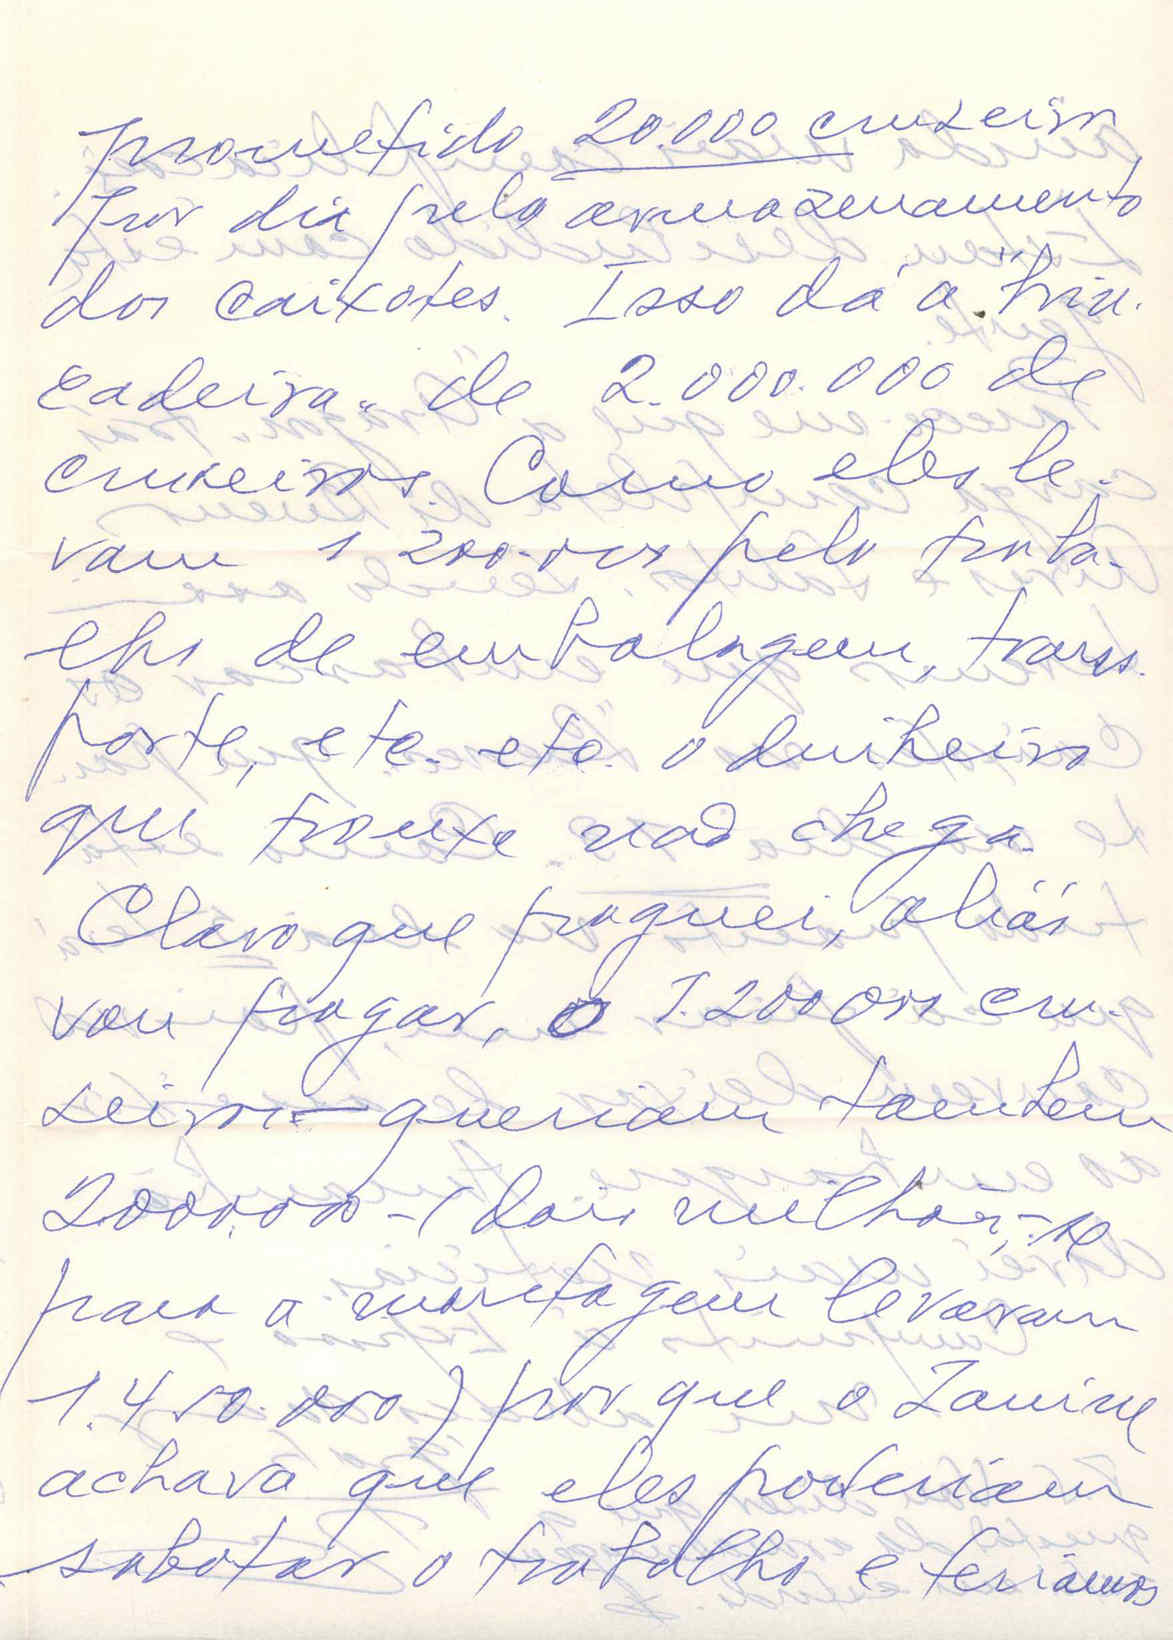 prometido 20.000 cruzeiros
por dia pelo armazenamento
dos caixotes. Isso dá a "brin-
cadeira" de 2.000.000 de
cruzeiros. Como eles le-
vam 1 200.000 pelo traba-
lho de embalagem, trans-
porte, etc. etc. o dinheiro
que trouxe não chega.
Claro que paguei, aliás
vou pagar, o 1.200 000 cru-
zeiros - queriam tambem
2.000.000 - (dois milhões,- se
para a montagem levaram
1.450.000) porque o Zanine
achava que eles poderiam
sabotar o trabalho e teriamos